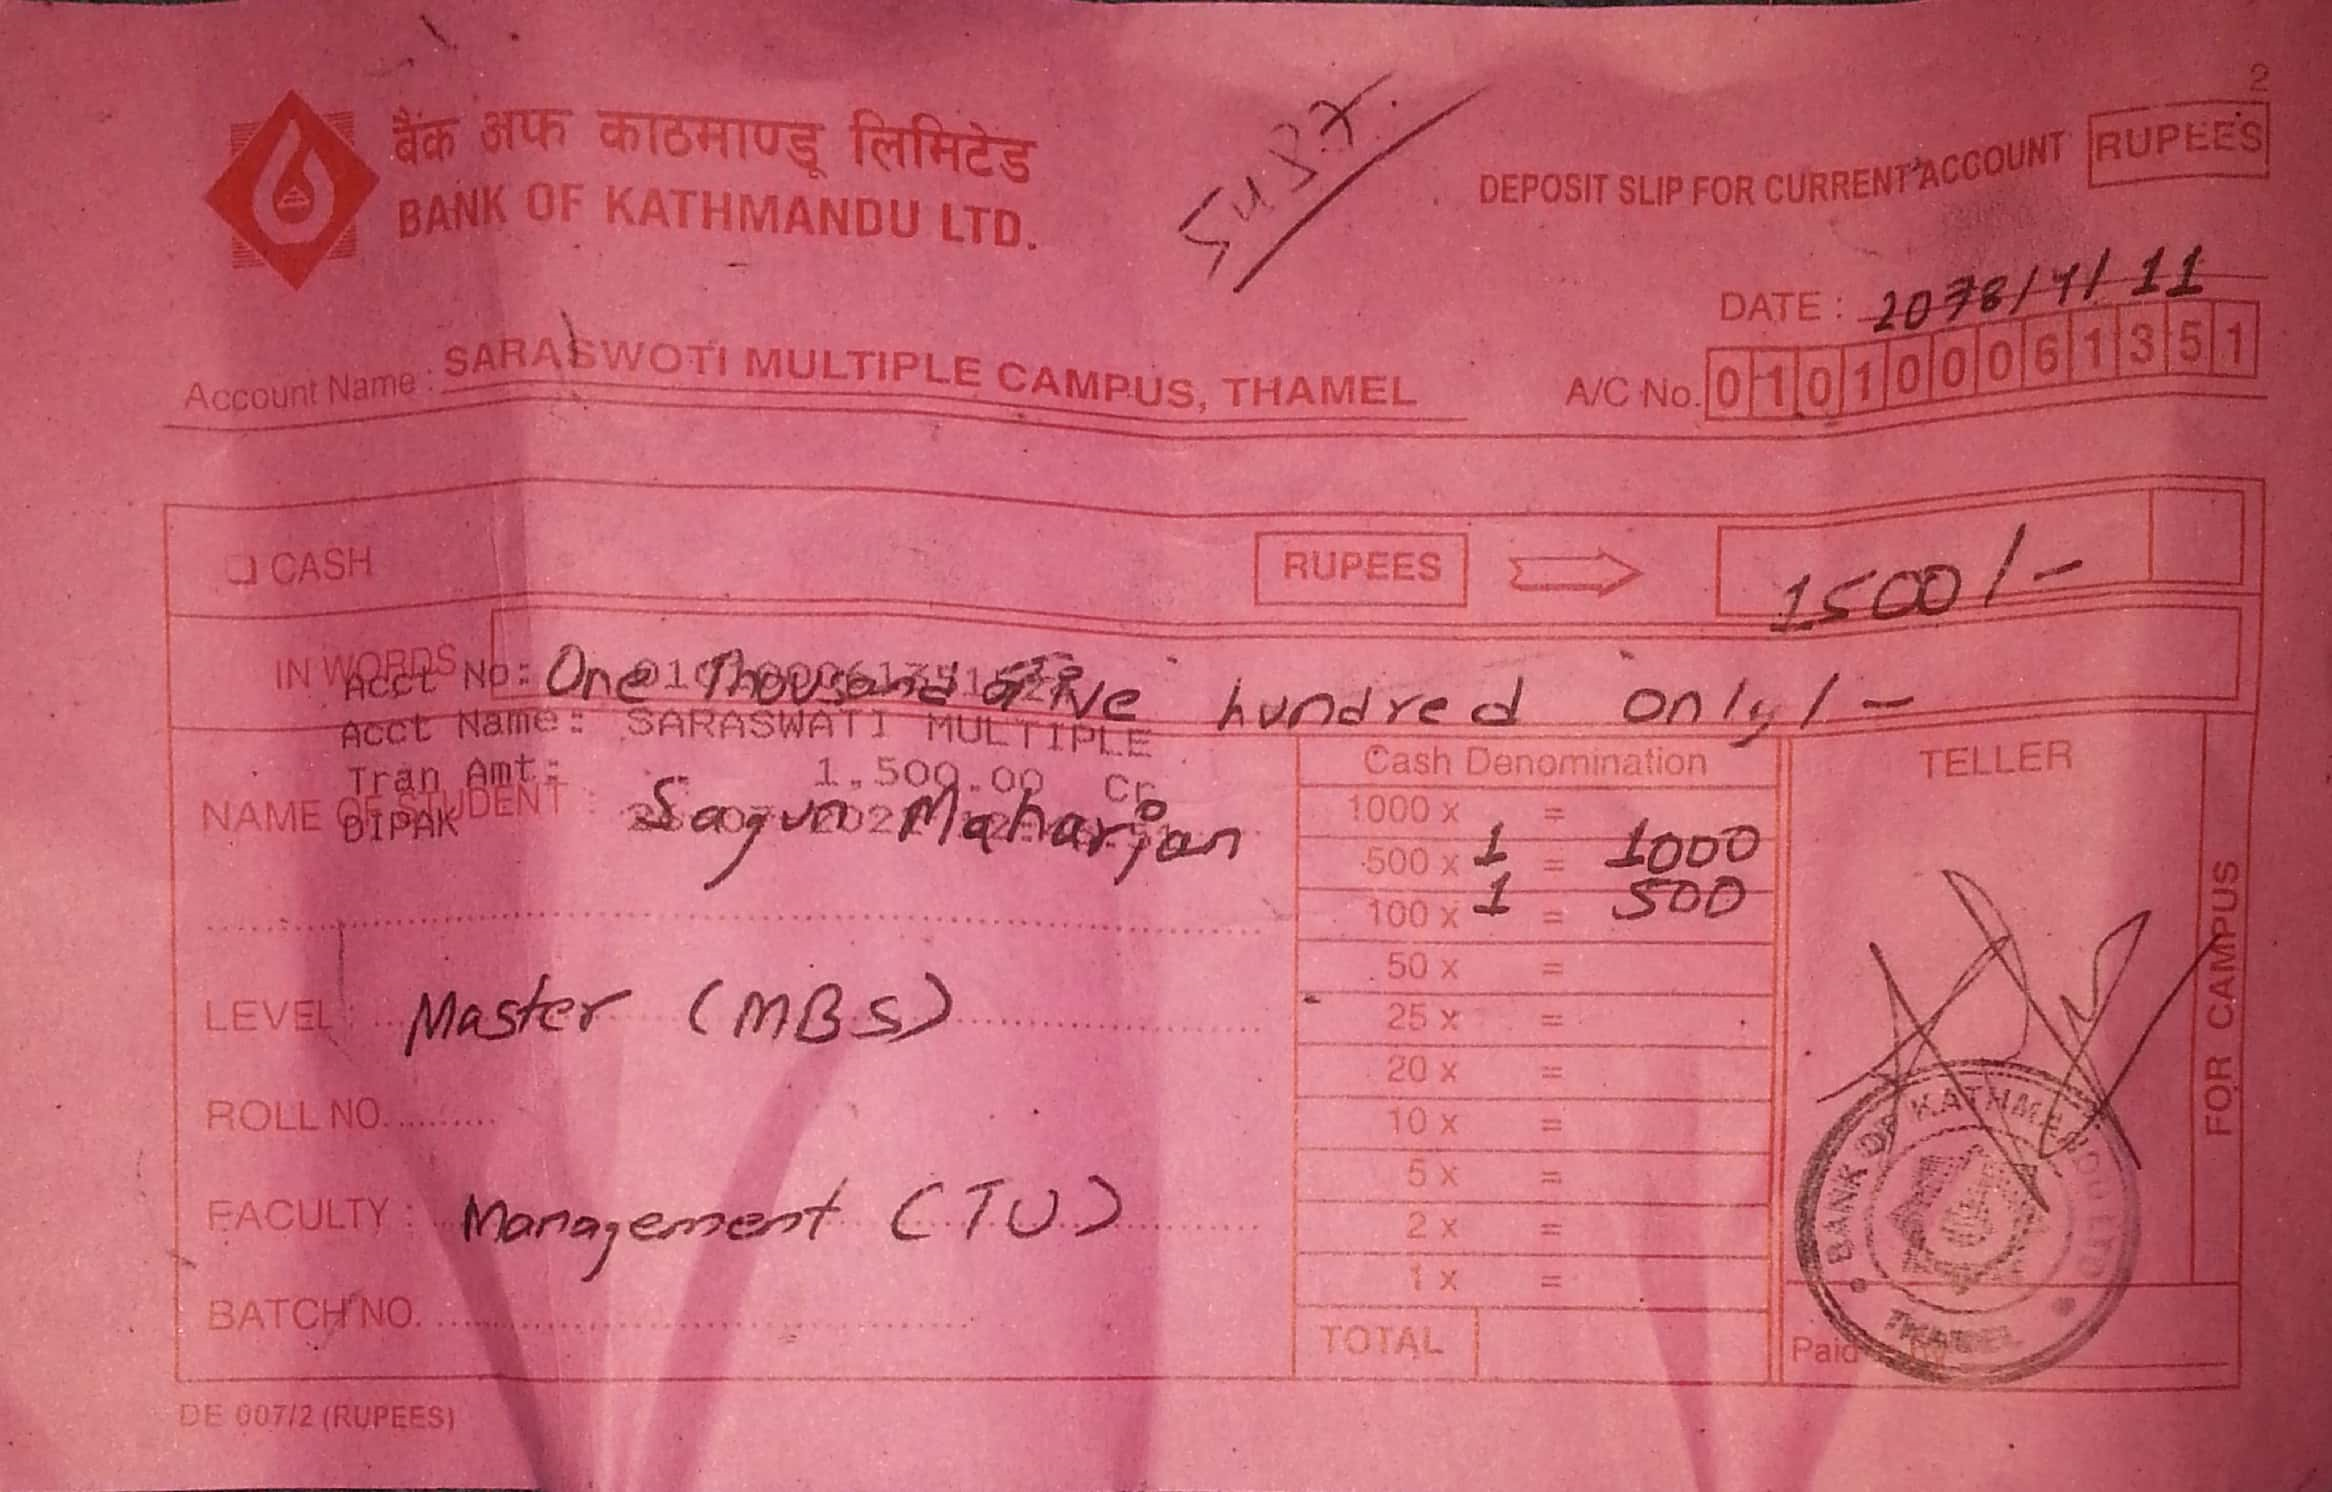 2
बैंक अफ काठमाण्डू लिमिटेड
BANK OF KATHMANDU LTD.
DEPOSIT SLIP FOR CURRENT ACCOUNT RUPEES
DATE : 2078/4/11
Account Name : SARASWOTI MULTIPLE CAMPUS, THAMEL
A/C No. 0101000061351
CASH RUPEES 1500/-
IN WORDS One Thousand five hundred only/-
Acct No:
Acct Name: SARASWATI MULTIPLE
Tran Amt: 1,500.00 Cr
DIPAK
NAME OF STUDENT : Sagun Maharjan
LEVEL : Master (MBS)
ROLL NO.
FACULTY : Management (TU)
BATCH NO.
Cash Denomination
1000 x =
500 x 1 = 1000
100 x 1 = 500
50 x =
25 x =
20 x =
10 x =
5 x =
2 x =
1 x =
TOTAL
TELLER
FOR CAMPUS
BANK OF KATHMANDU LTD
THAMEL
Paid by
DE 007/2 (RUPEES)